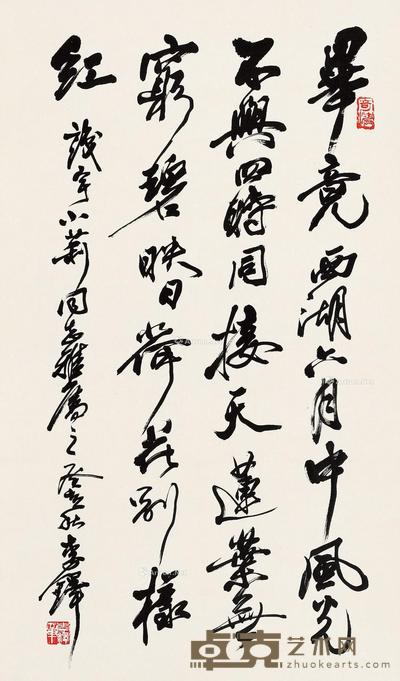 畢竟西湖六月中風光
不與四時同接天蓮葉無
窮碧映日荷花別樣
紅 小莉同志雅屬之 癸亥秋李鐸
卓克艺术网
zhuokearts.com